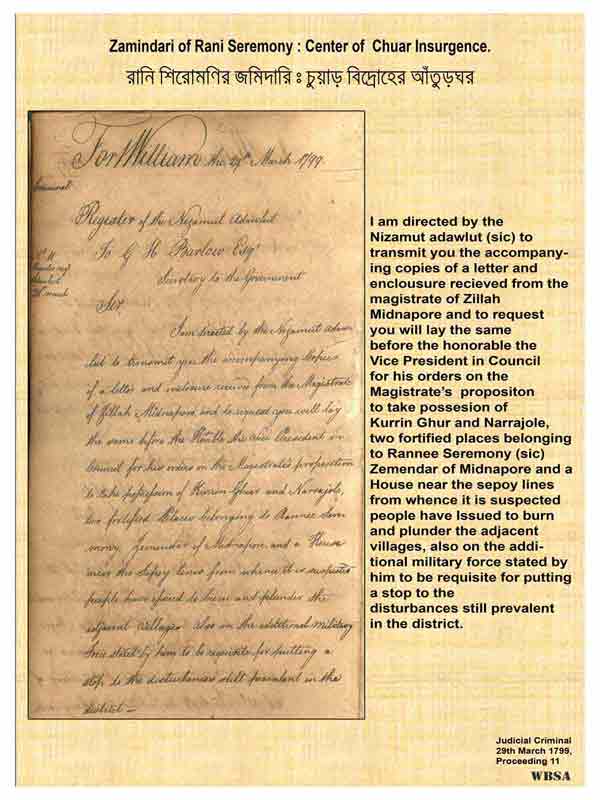 Zamindari of Rani Seremony : Center of Chuar Insurgence.
রানি শিরোমণির জমিদারি ঃ চুয়াড় বিদ্রোহের আঁতুড়ঘর
Fort William the 29th March 1799.
Register of the Nizamut Adawlut
To G H Barlow Esqr
Secretary to the Government
Sir
I am directed by the Nizamut Adaw
lut to transmit you the accompanying Copies
of a letter and inclosure received from the Magistrate
of Zillah Midnapore and to request you will lay
the same before the Honble the Vice President in
Council for his orders on the Magistrate's proposition
to take possession of Kurrin Ghur and Narrajole,
two fortified Places belonging to Rannee Sere
mony, Zemendar of Midnapore and a House
near the Sepoy lines from whence it is suspected
people have issued to burn and plunder the
adjacent Villages. Also on the additional military
force stated by him to be requisite for putting a
stop to the disturbances still prevalent in the
district
I am directed by the
Nizamut adawlut (sic) to
transmit you the accompany-
ing copies of a letter and
enclousure recieved from the
magistrate of Zillah
Midnapore and to request
you will lay the same
before the honorable the
Vice President in Council
for his orders on the
Magistrate's propositon
to take possesion of
Kurrin Ghur and Narrajole,
two fortified places belonging
to Rannee Seremony (sic)
Zemendar of Midnapore and a
House near the sepoy lines
from whence it is suspected
people have Issued to burn
and plunder the adjacent
villages, also on the addi-
tional military force stated by
him to be requisite for putting
a stop to the
disturbances still prevalent
in the district.
Judicial Criminal
29th March 1799,
Proceeding 11
WBSA